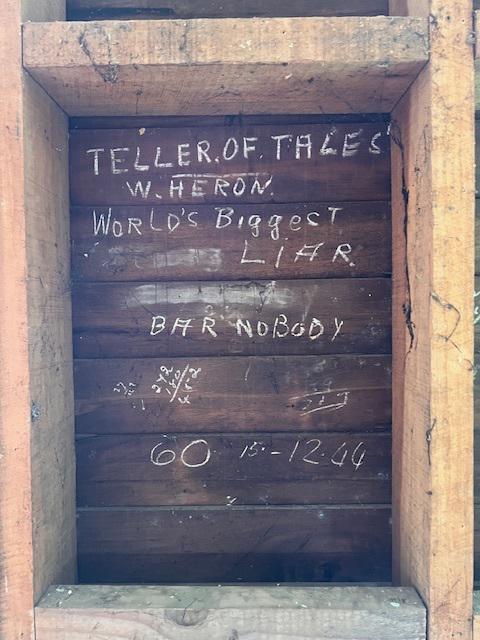 TELLER.OF.TALES
W. HERON.
WORLD'S BiggesT
LIAR
BAR NOBODY
60 15-12.44